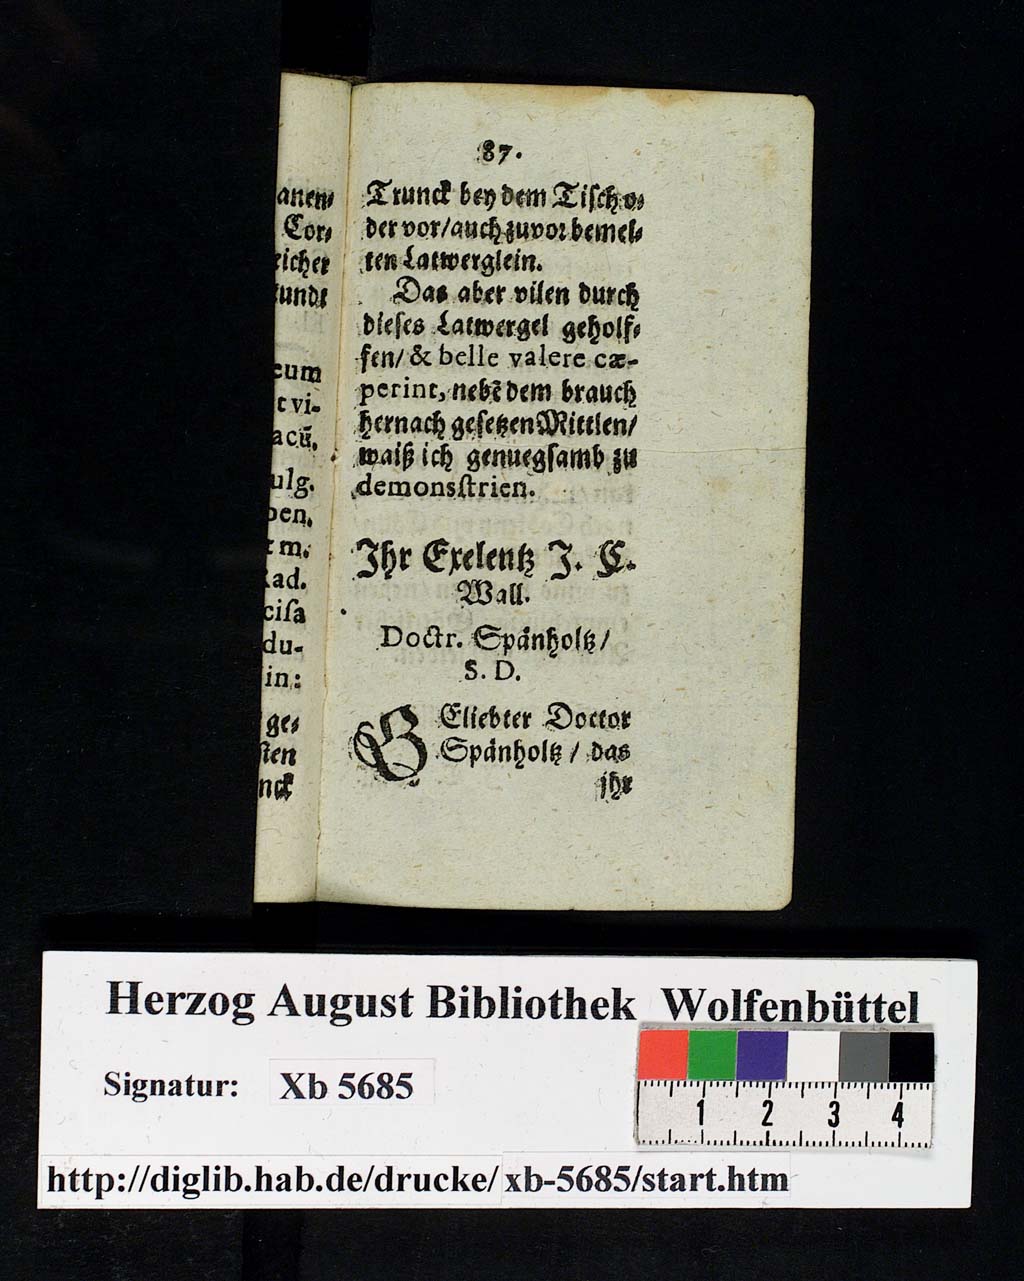 87.
Trunck bey dem Tiſch o⸗
der vor/auch zuvor bemel⸗
ten Latwerglein.
Das aber vilen durch
dieſes Latwergel geholf⸗
fen/ & belle valere cæ-
perint, nebẽ dem brauch
hernach geſetzen Mittlen/
waiß ich genuegſamb zu
demonsſtrien.
Ihr Exelentz J. C.
Wall.
Doctr. Spänholtz/
S. D.
GEliebter Doctor
Spänholtz / das
jhr
anen⸗
Cor⸗
eicher
kundt
eum
t vi-
acũ.
ulg.
ben.
m.
Rad.
ciſa
du-
in:
ge⸗
ſten
nck
Herzog August Bibliothek Wolfenbüttel
Signatur: Xb 5685
1 2 3 4
http://diglib.hab.de/drucke/xb-5685/start.htm